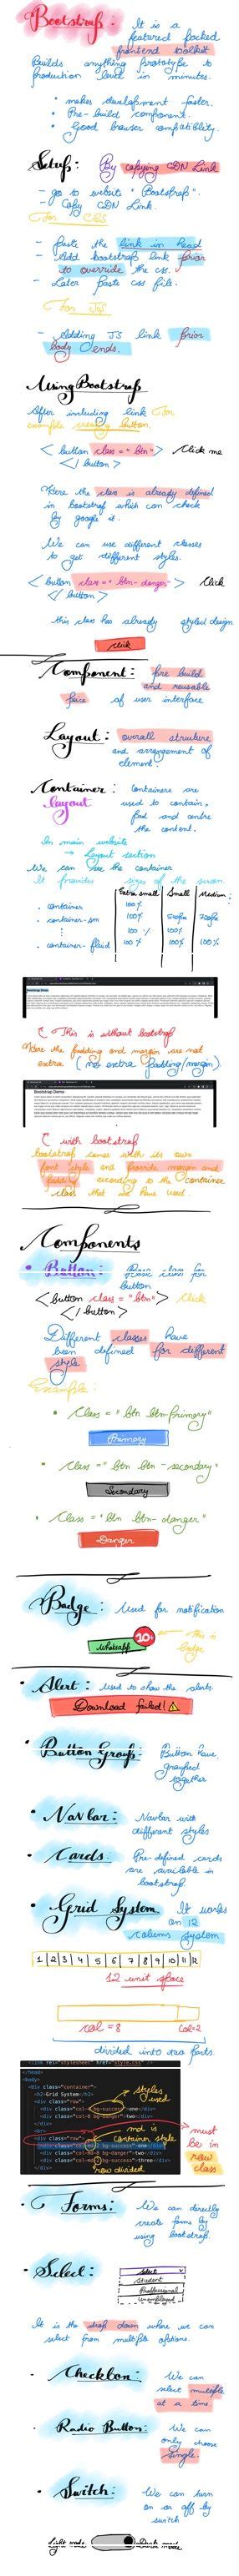 Bootstrap : It is a
featured packed
frontend toolkit
Builds anything prototype to
production level in minutes.
• makes development faster.
• Pre-build component.
• Good browser compatibility.
Setup: By copying CDN Link
- go to website "Bootstrap".
- Copy CDN Link.
For CSS
- Paste the link in head
- Add bootstrap link prior
to override the css.
- Later paste css file.
For JS
- Adding JS link prior
body ends.
Using Bootstrap
After including link for
example creating button.
< button class = " btn" > Click me
</ button >
Here the class is already defined
in bootstrap which can check
by google it.
We can use different classes
to get different styles.
< button class = " btn- danger" > Click
</ button >
this class has already styled design
click
Component : pre build
and reusable
piece of user interface
Layout : overall structure
and arrangement of
element.
Container : Containers are
layout used to contain,
pad and centre
the content.
In main website
→ Layout section
We can see the container
It provides sizes of the screen
Extra small Small Medium
• container 100%
• container-sm 100%
100 %
• container- fluid 100% 100% 100%
Bootstrap Demo
This is without bootstrap
Here the padding and margin are not
extra ( no extra padding/margin)
Bootstrap Demo
with bootstrap
bootstrap comes with its own
font style and provide margin and
padding according to the container
class that we have used.
Components
• Button : Basic class for
button
<button class = "btn"> Click
</ button>
Different classes have
been defined for different
style
Example :
• Class = " btn btn-primary"
Primary
• Class = " btn btn - secondary"
Secondary
• Class = " btn btn - danger"
Danger
Badge : Used for notification
whatsapp 10+ This is
badge
• Alert : Used to show the alerts.
Download failed! ⚠
• Button Group: Button have
grouped
together
• NavBar : Navbar with
different styles
• Cards: Pre-defined cards
are available in
bootstrap.
• Grid System It works
on 12
column system
1 2 3 4 5 6 7 8 9 10 11 12
12 unit space
col = 8 Col=2
divided into two parts.
<link rel="stylesheet" href="style.css" />
</head>
<body>
<div class="container">
<h2>Grid System</h2>
styles
used
<br>
must
be in
row
class
row divided
• Forms : We can directly
create forms by
using bootstrap.
• Select : Select
Student
Professional
Unemployed
It is the drop down where we can
select from multiple options.
• Checkbox : We can
select multiple
at a time.
• Radio Button : We can
only choose
single.
• Switch : We can turn
on or off by
switch
Light mode Dark mode